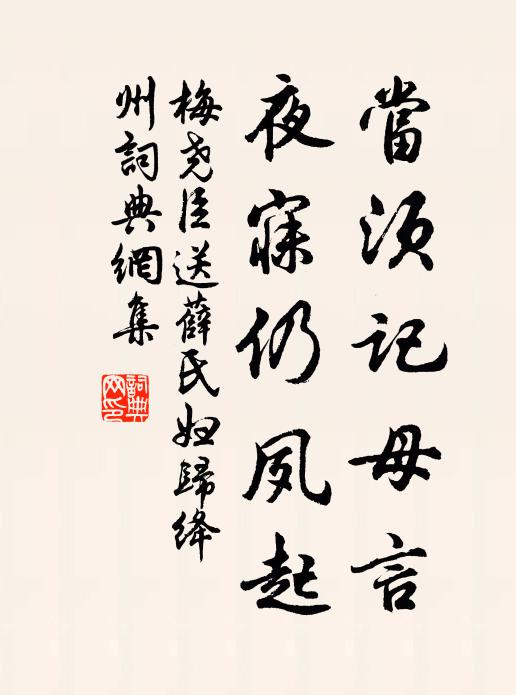 當須記母言
夜寐仍夙起
梅尧臣送薛氏妇歸絳
州詞典網集
詞典网印